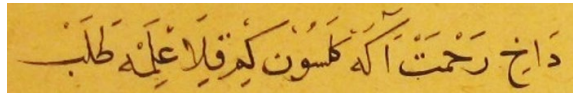 دَاخِ رَحْمَتْ اٰكَهْ كَلْسُوْن كِمْ قِلَا عِلْمِنَه طَلَبْ